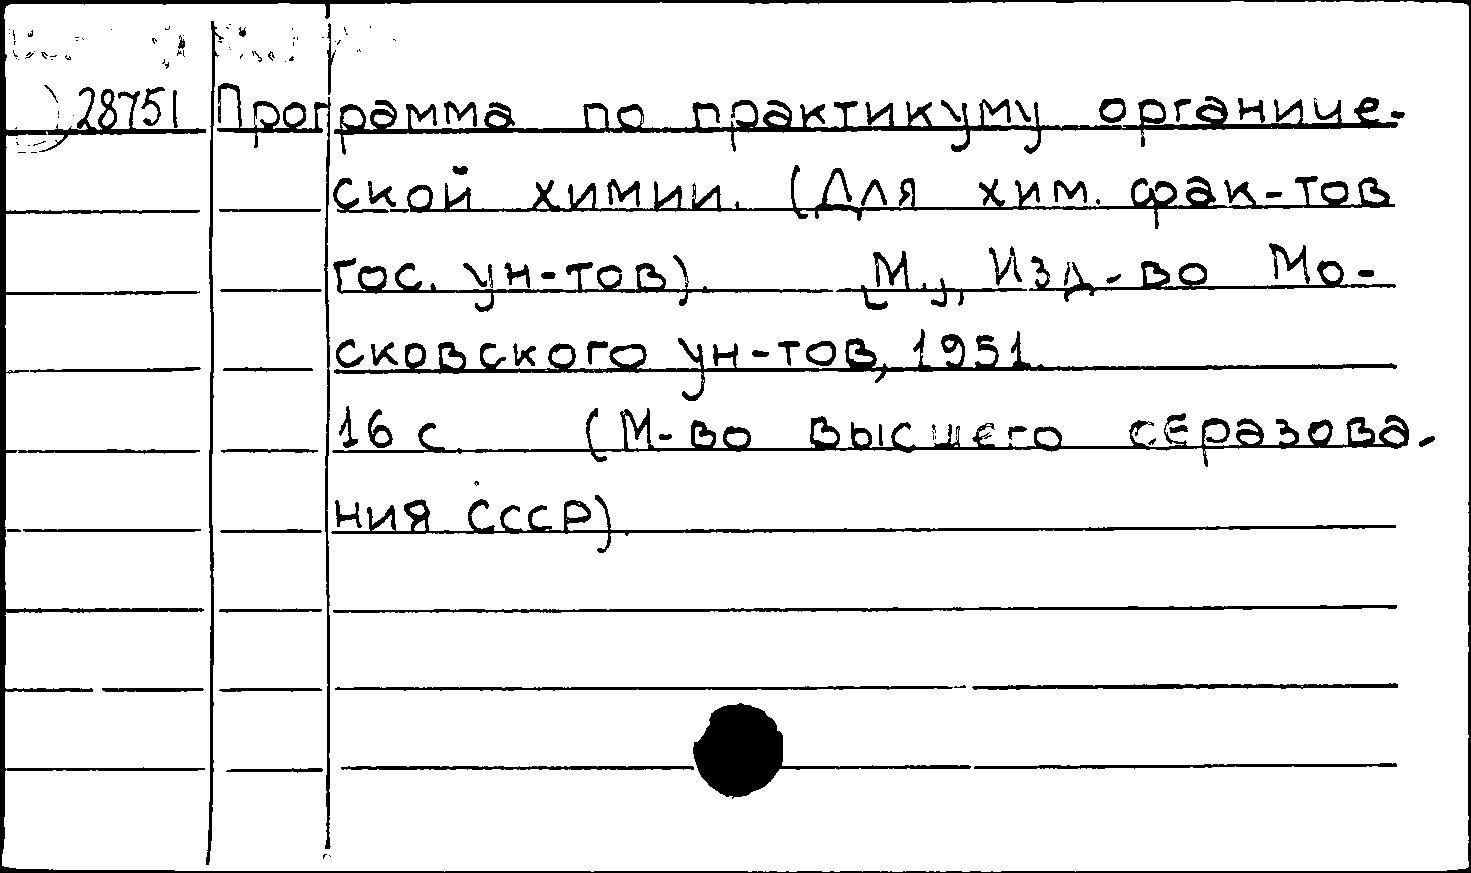 28751 Программа по практикуму органиче-
ской химии. (Для хим. фак-тов
гос. ун-тов). [М.], Изд-во Мо-
сковского ун-тов, 1951.
16 с. (М-во высшего образова-
ния СССР).